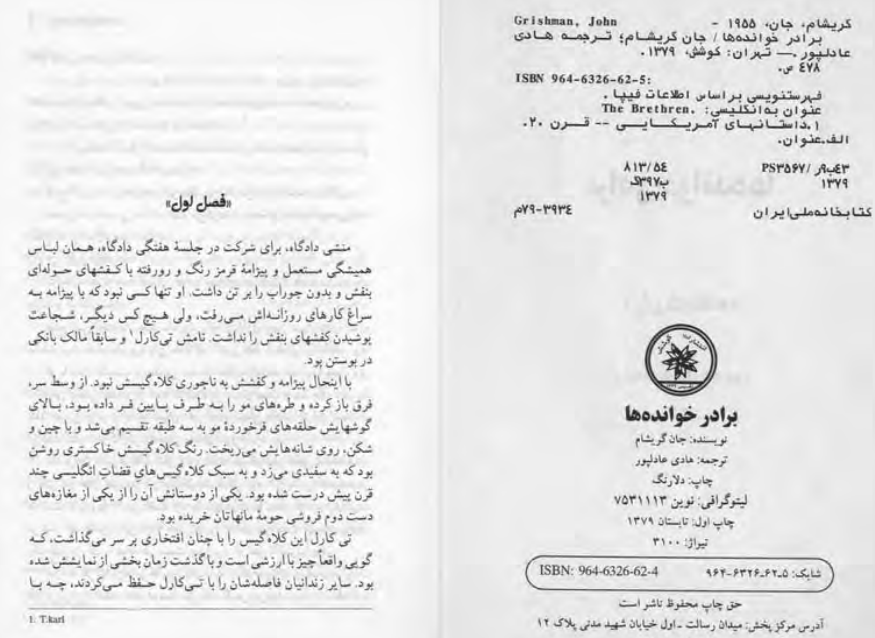 Grishman, John
کریشام، جان، ۱۹۵۵ -
برادر خوانده‌ها / جان کریشام؛ ترجمه هادی
عادلپور.— تهران: کوشش، ۱۳۷۹.
۴۷۸ ص.
ISBN 964-6326-62-5:
فهرستنویسی براساس اطلاعات فیپا .
عنوان به‌انگلیسی: .The Brethren
۱.داستانهای آمریکایی -- قرن ۲۰.
الف.عنوان.
۸۱۳/۵۴
PS۳۵۶۷/
ب۳۹۷گ
۱۳۷۹
۱۳۷۹
م۷۹-۳۹۳۴
کتابخانه‌ملی‌ایران
برادر خوانده‌ها
نویسنده: جان گریشام
ترجمه: هادی عادلپور
چاپ: دلارنگ
لیتوگرافی: نوین ۷۵۳۱۱۱۳
چاپ اول: تابستان ۱۳۷۹
تیراژ: ۳۱۰۰
شابک: ۵ـ۶۲ـ۶۳۲۶ـ۹۶۴
ISBN: 964-6326-62-4
حق چاپ محفوظ ناشر است
آدرس مرکز پخش: میدان رسالت ـ اول خیابان شهید مدنی پلاک ۱۲
«فصل اول»
منشی دادگاه، برای شرکت در جلسهٔ هفتگی دادگاه، همان لباس
همیشگی مستعمل و پیژامهٔ قرمز رنگ و رورفته با کفشهای حوله‌ای
بنفش و بدون جوراب را بر تن داشت. او تنها کسی نبود که با پیژامه به
سراغ کارهای روزانه‌اش می‌رفت، ولی هیچ کس دیگر، شجاعت
پوشیدن کفشهای بنفش را نداشت. نامش تی‌کارل۱ و سابقاً مالک بانکی
در بوستن بود.
با اینحال پیژامه و کفشش به ناجوری کلاه گیسش نبود. از وسط سر،
فرق باز کرده و طره‌های مو را به طرف پایین فر داده بود، بالای
گوشهایش حلقه‌های فرخوردهٔ مو به سه طبقه تقسیم می‌شد و با چین و
شکن، روی شانه‌هایش می‌ریخت. رنگ کلاه گیسش خاکستری روشن
بود که به سفیدی می‌زد و به سبک کلاه گیس‌های قضات انگلیسی چند
قرن پیش درست شده بود. یکی از دوستانش آن را از یکی از مغازه‌های
دست دوم فروشی حومهٔ مانهاتان خریده بود.
تی کارل این کلاه گیس را با چنان افتخاری بر سر می‌گذاشت، که
گویی واقعاً چیز با ارزشی است و با گذشت زمان بخشی از نمایشش شده
بود. سایر زندانیان فاصله‌شان را با تی‌کارل حفظ می‌کردند، چه با
1. T.karl